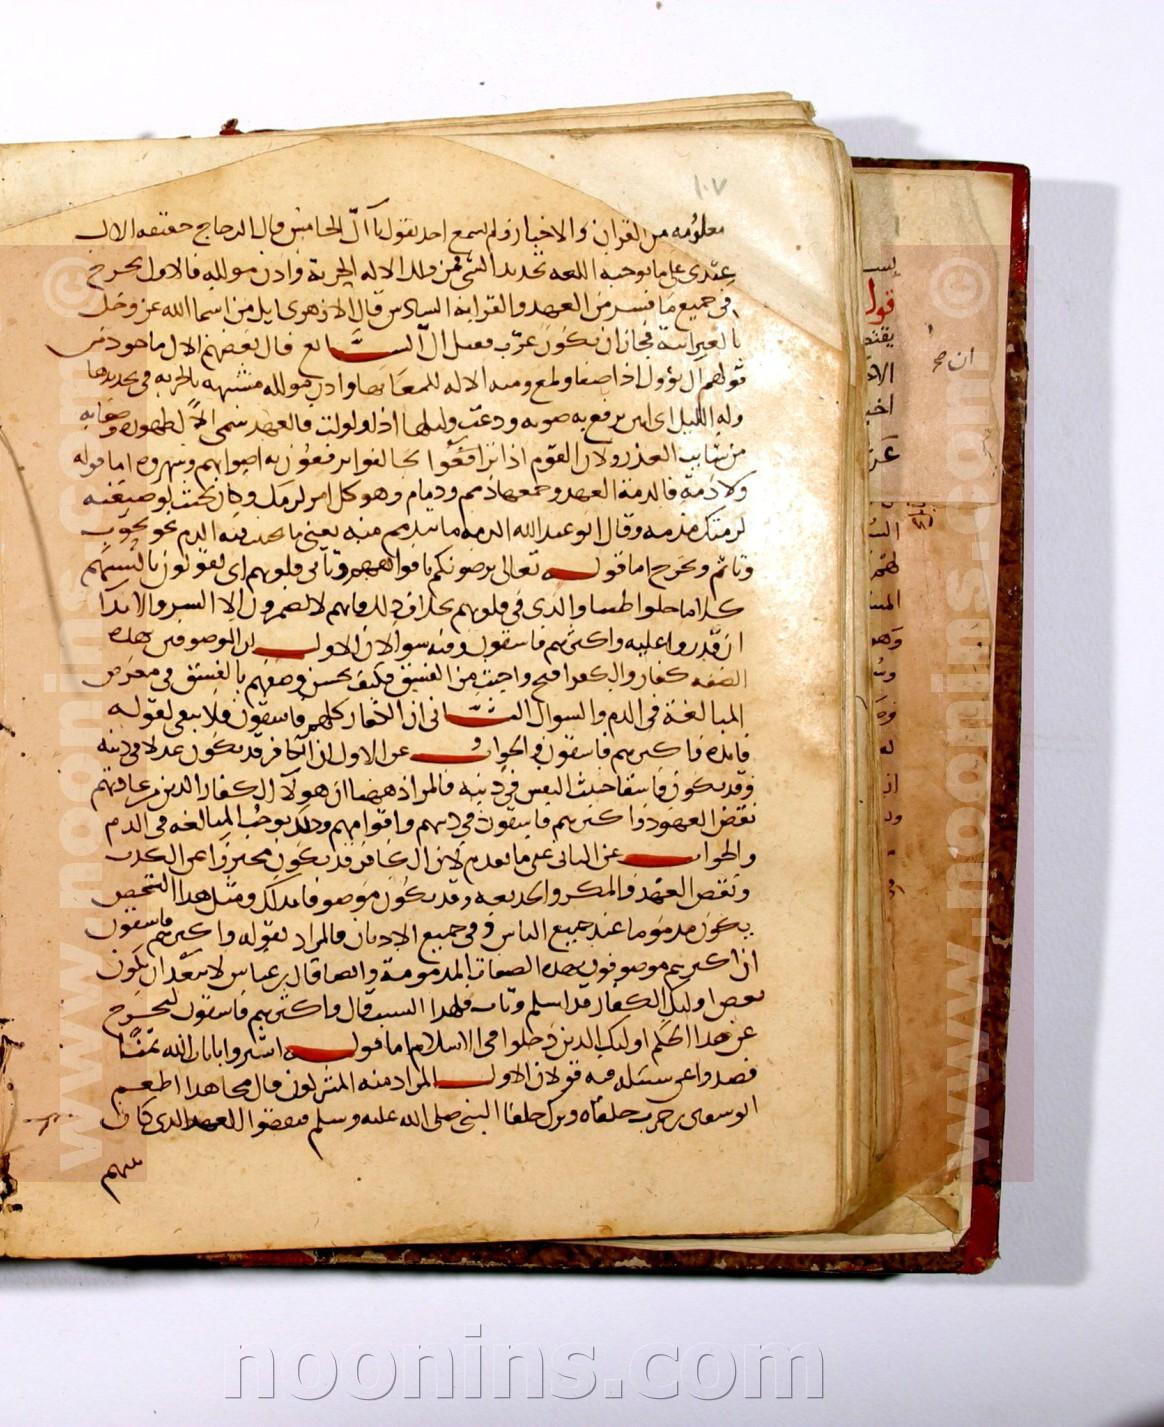 ١٠٧
معلومه من القران والاخبار ولم يسمع احد يقول يا الّ الخامس قال الزجاج حقيقه الال
عندى على ما يوجبه اللغه تحديد الشى فمن ذلك الاله الحربة واذن مولله فالاول يخرج
فى جميع ما فسر من العهد والقرابة السادس قال الازهرى ايل من اسما الله عز وجل
بالعبرانية فجاز ان يكون عرّب فقيل الّ السابع قال بعضهم الال ماخوذ من
قولهم ال يؤول اذا صفا ولمع ومنه الاله للمعانها واذن موللة مشبهه بالحربه فى تحديدها
وله اليل اى انين يرفع به صوته ودعت اليلها اذا ولولت فالعهد سمى الاً لظهوره وصفايه
من شايب الغدر ولان القوم اذا تحالفوا رفعوا به اصواتهم وشهروه اما قوله
ولا ذمة فالذمة العهد وجمعها ذمم وذمام وهو كل امر لزمك وكان بحيث لو ضيعته
لزمتك مذمه وقال ابو عبد الله الذمه ما يتذمم منه يعنى ما يجتنب فيه الذم نحو تحوب
وتاثم وتحرج اما قوله تعالى يرضونكم بافواههم وتابى قلوبهم اى يقولون بالسنتهم
كلاما حلوا طيبا والذى فى قلوبهم بخلاف ذلك فانهم لا يضمرون الا الشر والايذا
ان قدروا عليه واكثرهم فاسقون وفيه سوالان الاول ان الموصوفين بهذه
الصفه كفار والكفر اقبح واخبث من الفسق فكيف يحسن وصفهم بالفسق فى معرض
المبالغة فى الذم والسوال الثانى ان الكفار كلهم فاسقون فلا يبقى لقوله
فايده واكثرهم فاسقون والجواب عن الاول ان الكافر قد يكون عدلا فى دينه
وقد يكون فاسقا خبيث النفس فى دينه فالمراد ههنا ان هولآ الكفار الذين من عادتهم
نقض العهود واكثرهم فاسقون فى دينهم واقوامهم وذلك يوجب المبالغه فى الذم
والجواب عن الثانى عين ما تقدم لان الكافر قد يكون محترزا عن الكذب
ونقض العهد والمكر والخديعه وقد يكون موصوفا بذلك ومثل هذا الشخص
يكون مذموما عند جميع الناس وفى جميع الاديان فالمراد بقوله واكثرهم فاسقون
ان اكثرهم موصوفون بهذه الصفات المذمومة وايضا قال ابن عباس لا يبعد ان يكون
بعض اوليك الكفار قد اسلم وتاب فلهذا السبب قال واكثرهم فاسقون ليخرج
عن هذا الحكم اوليك الذين دخلوا فى الاسلام اما قوله اشتروا بايات الله ثمنا
فصدوا عن سبيله فيه قولان الاول المراد منه المشركون قال مجاهد اطعم
ابو سفين بن حرب حلفاه وترك حلفا النبى صلى الله عليه وسلم فنقضوا العهد الذى كان
بينهم
ان صح
قول
www.noonins.com ©
www.noonins.com ©
noonins.com